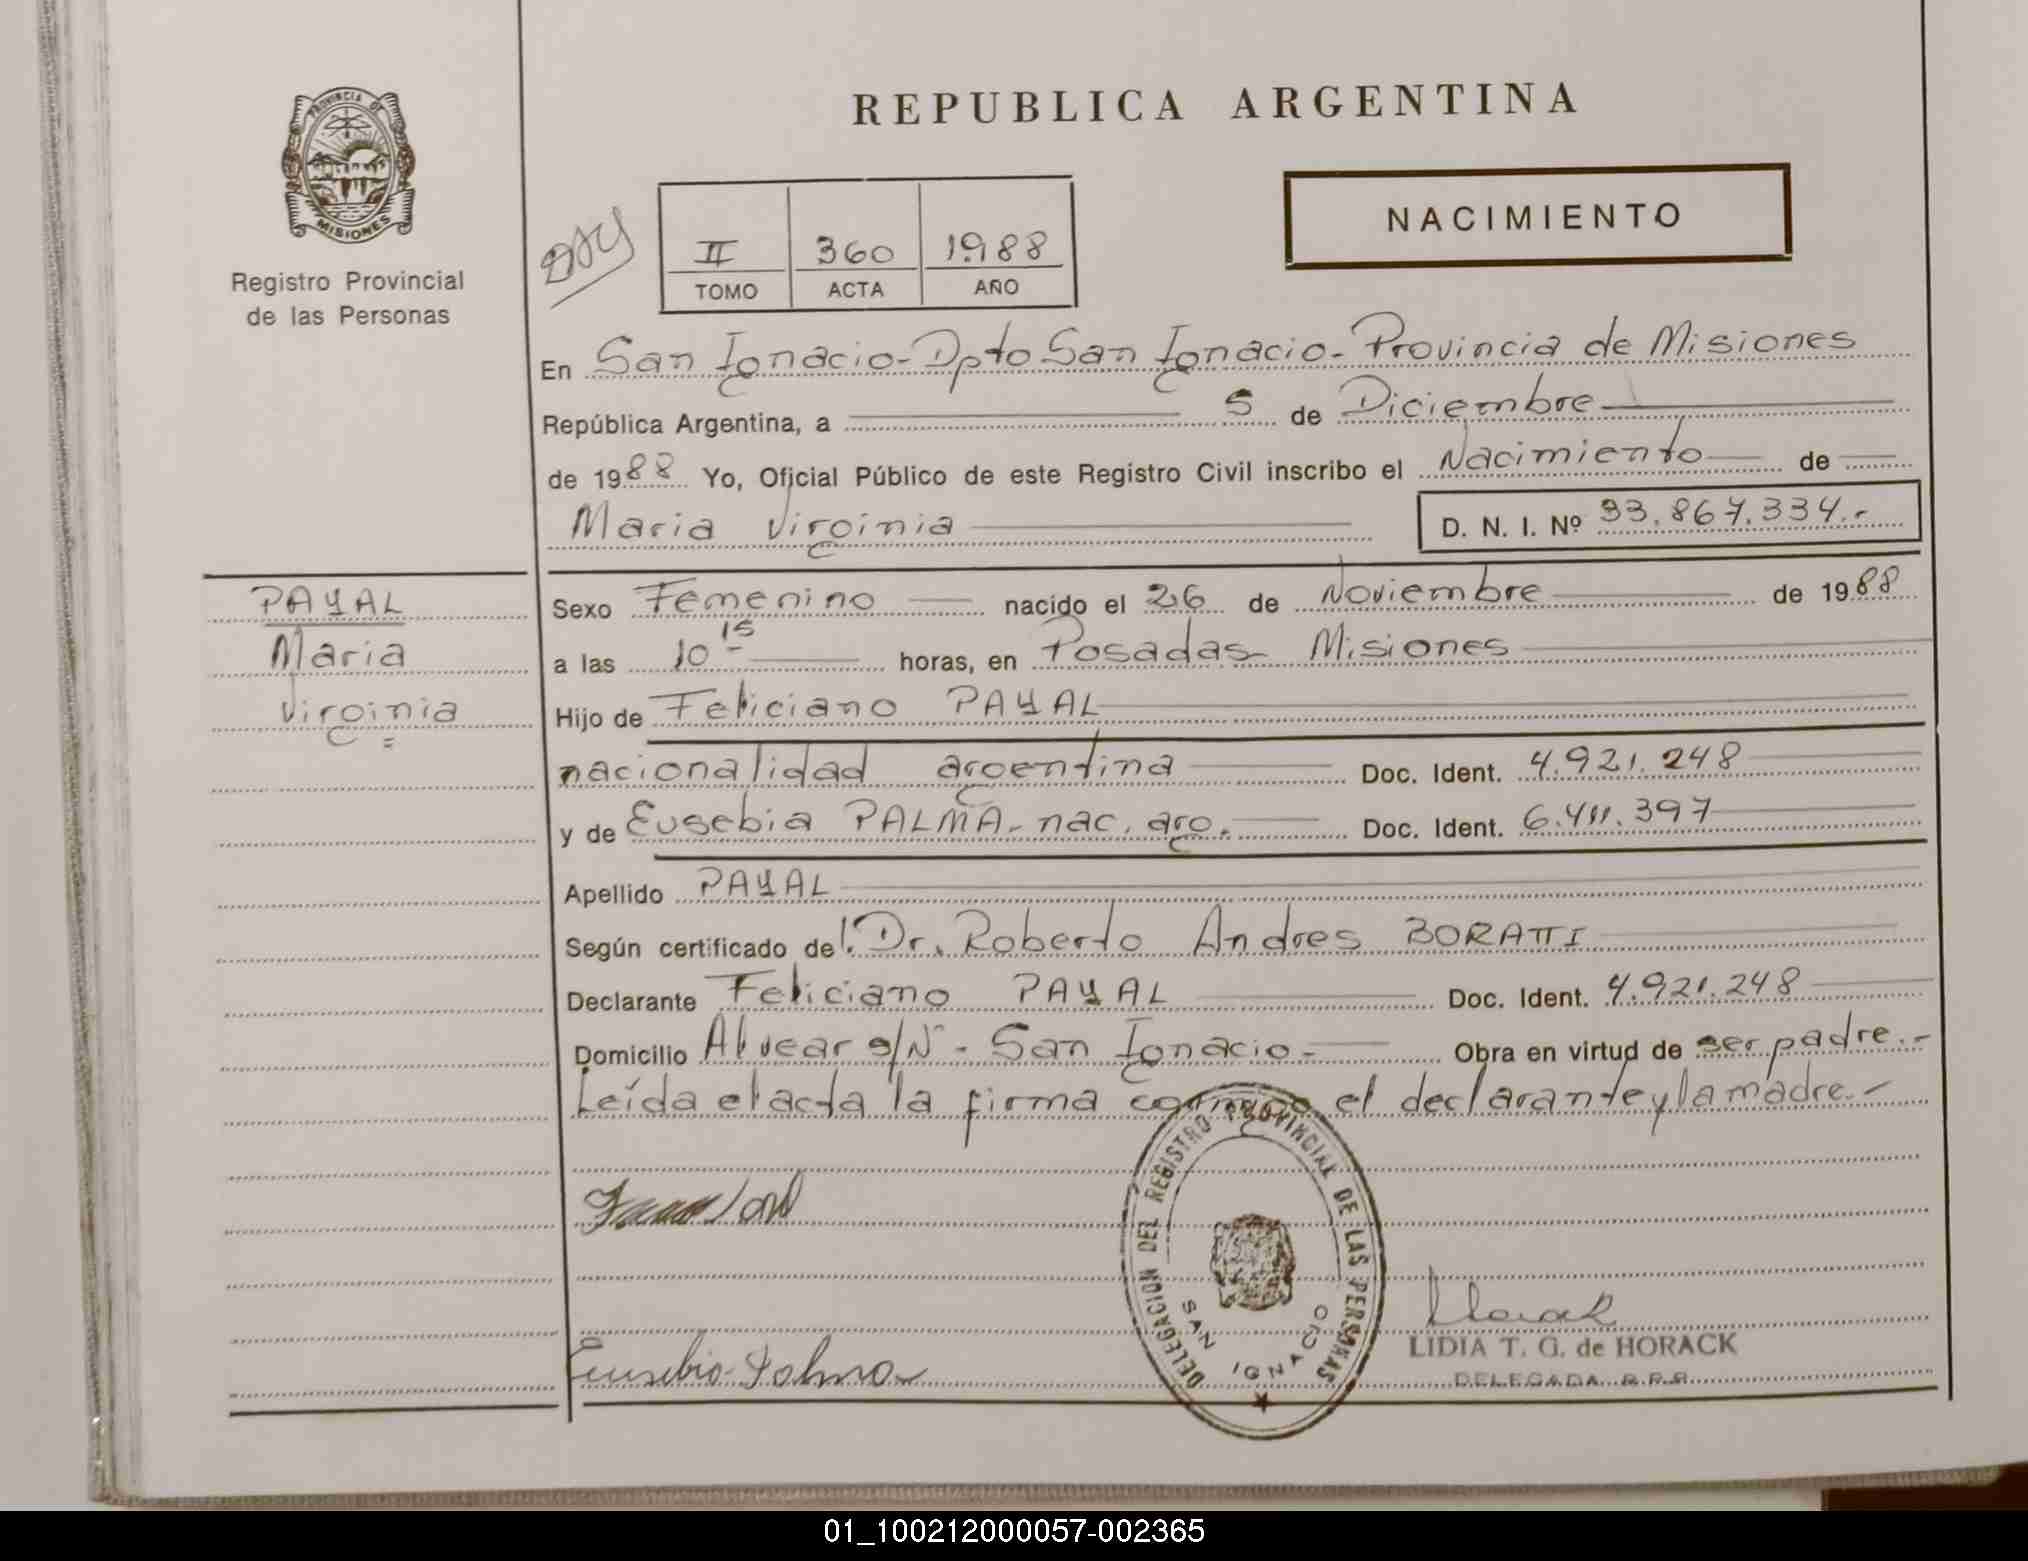 PROVINCIA DE
MISIONES
Registro Provincial
de las Personas
REPUBLICA ARGENTINA
NACIMIENTO
II 360 1988
TOMO ACTA AÑO
En San Ignacio - Dpto San Ignacio - Provincia de Misiones
República Argentina, a 5 de Diciembre
de 1988 Yo, Oficial Público de este Registro Civil inscribo el Nacimiento de
Maria Virginia D. N. I. Nº 33.867.334.-
PAYAL
Maria
Virginia
Sexo Femenino nacido el 26 de Noviembre de 1988
a las 10 15 horas, en Posadas - Misiones
Hijo de Feliciano PAYAL
nacionalidad argentina Doc. Ident. 4.921.248
y de Eusebia PALMA - nac. arg. Doc. Ident. 6.411.397
Apellido PAYAL
Según certificado del Dr. Roberto Andres BORATTI
Declarante Feliciano PAYAL Doc. Ident. 4.921.248
Domicilio Alvear s/Nº - San Ignacio - Obra en virtud de ser padre.-
Leída el acta la firma conmigo el declarante y la madre.-
DELEGACION DEL REGISTRO PROVINCIAL DE LAS PERSONAS
SAN IGNACIO
Eusebia Palma
LIDIA T. G. de HORACK
DELEGADA R.P.P.
01_100212000057-002365